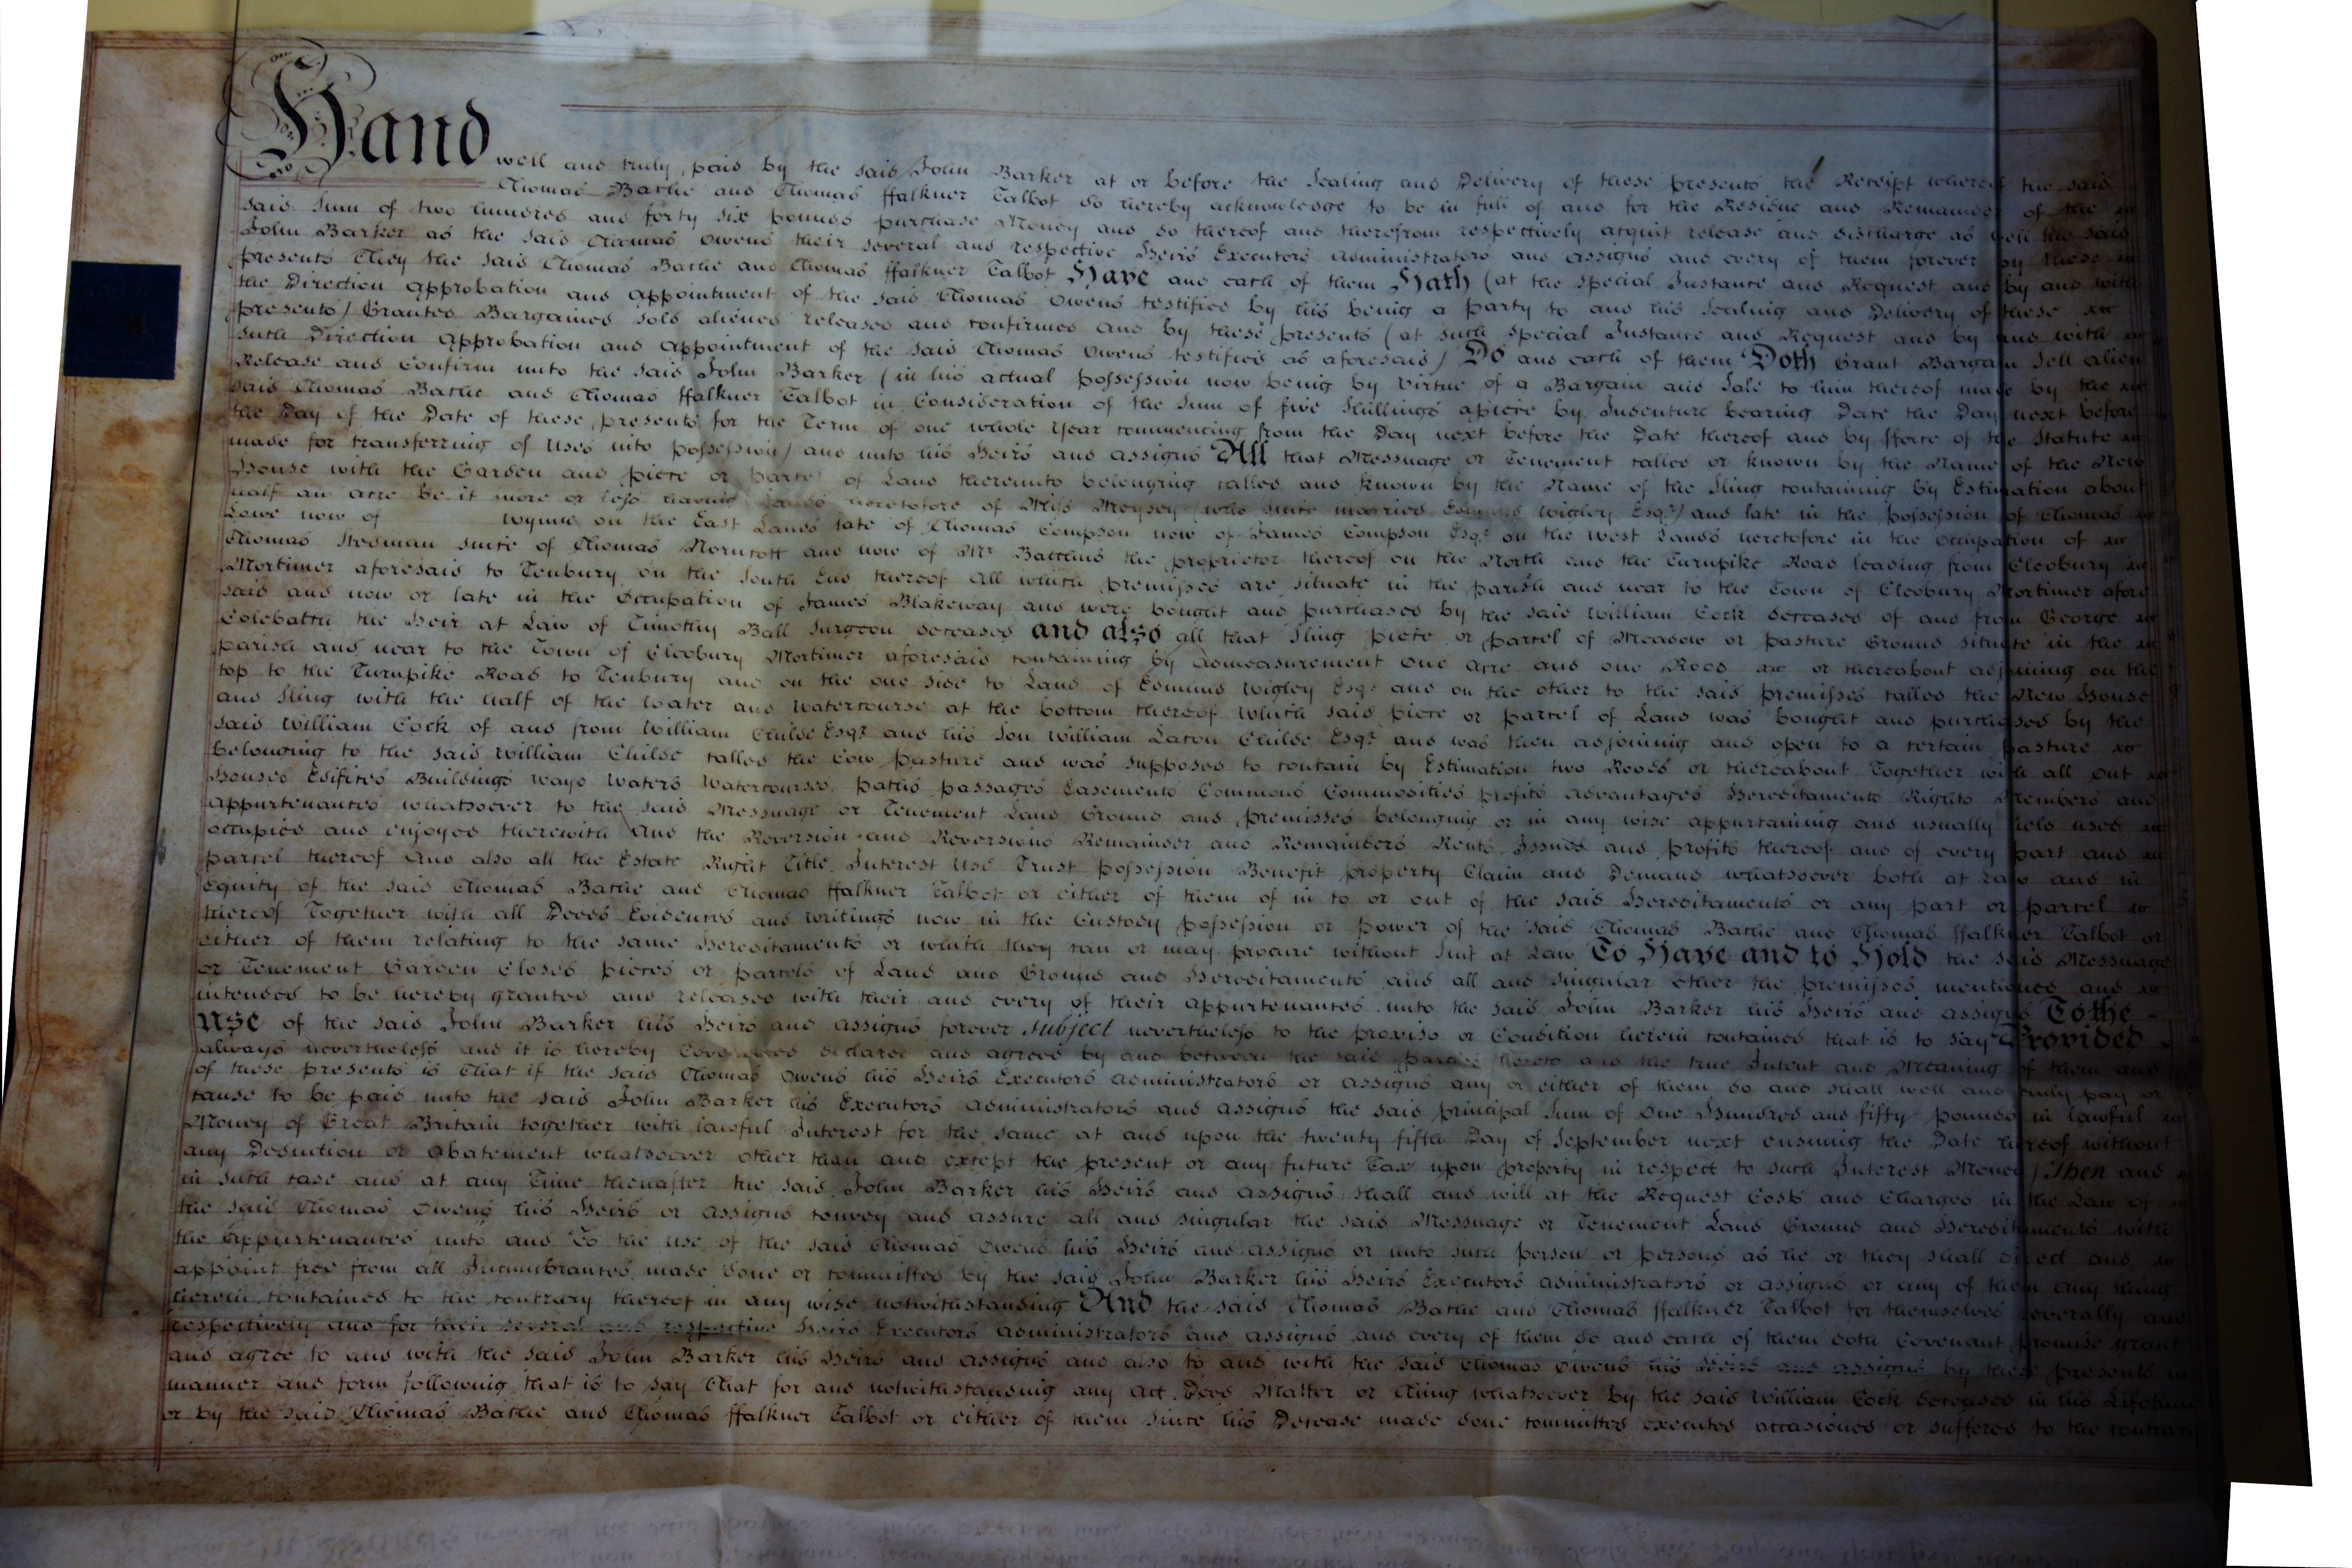 Hand well and truly paid by the said John Barker at or before the Sealing and Delivery of these presents the Receipt whereof the said
Thomas Bache and Thomas ffalkner Talbot do hereby acknowledge to be in full of and for the Residue and Remainder of the
said Sum of two hundred and forty six pounds purchase Money and do thereof and therefrom respectively acquit release and discharge as well the said
John Barker as the said Thomas Owens their several and respective Heirs Executors Administrators and Assigns and every of them forever by these
presents They the said Thomas Bache and Thomas ffalkner Talbot Have and each of them Hath (at the special Instance and Request and by and with
the Direction Approbation and Appointment of the said Thomas Owens testified by his being a party to and his Sealing and Delivery of these
presents) Granted Bargained sold aliened released and confirmed and by these presents (at such special Instance and Request and by and with
such Direction Approbation and Appointment of the said Thomas Owens testified as aforesaid) Do and each of them Doth Grant Bargain Sell alien
Release and Confirm unto the said John Barker (in his actual possession now being by virtue of a Bargain and Sale to him thereof made by the
said Thomas Bache and Thomas ffalkner Talbot in Consideration of the Sum of five Shillings apiece by Indenture bearing Date the Day next before
the Day of the Date of these presents for the Term of one whole Year commencing from the Day next before the Date thereof and by fforce of the Statute
made for transferring of Uses into possession) and unto his Heirs and Assigns All that Messuage or Tenement called or known by the Name of the New
House with the Garden and piece or parcel of Land thereunto belonging called and known by the Name of the Sling containing by Estimation about
half an acre be it more or less having Lands heretofore of Miss Meysey (who since married Edmund Wigley Esqr.) and late in the possession of Thomas
Lowe now of Wynne on the East Lands late of Thomas Compson now of James Compson Esqr. on the West Lands heretofore in the Occupation of
Thomas Stedman since of Thomas Norncott and now of Mr. the proprietor thereof on the North and the Turnpike Road leading from Cleobury
Mortimer aforesaid to Tenbury on the South End thereof All which premisses are situate in the parish and near to the Town of Cleobury Mortimer afore
said and now or late in the Occupation of James Blakeway and were bought and purchased by the said William Cock deceased of and from George
Colebatch the Heir at Law of Timothy Ball Surgeon deceased and also all that Sling piece or parcel of Meadow or pasture Ground situate in the
parish and near to the Town of Cleobury Mortimer aforesaid containing by admeasurement one acre and one Rood or thereabout adjoining on the
top to the Turnpike Road to Tenbury and on the one side to Land of Edmund Wigley Esqr. and on the other to the said premisses called the New House
and Sling with the half of the Water and Watercourse at the bottom thereof which said piece or parcel of Land was bought and purchased by the
said William Cock of and from William Childe Esqr. and his Son William Lacon Childe Esqr. and was then adjoining and open to a certain pasture
belonging to the said William Childe called the Cow pasture and was supposed to contain by Estimation two Roods or thereabout Together with all Out
Houses Edifices Buildings Ways Waters Watercourses paths passages Easements Commons Commodities profits Advantages Hereditaments Rights Members and
Appurtenances whatsoever to the said Messuage or Tenement Land Ground and premisses belonging or in any wise appurtaining and usually held used
occupied and enjoyed therewith And the Reversion and Reversions Remainder and Remainders Rents Issues and profits thereof and of every part and
parcel thereof And also all the Estate Right Title Interest Use Trust possession Benefit property Claim and Demand whatsoever both at Law and in
Equity of the said Thomas Bache and Thomas ffalkner Talbot or either of them of in to or out of the said Hereditaments or any part or parcel
thereof Together with all Deeds Evidences and Writings now in the Custody possession or power of the said Thomas Bache and Thomas ffalkner Talbot or
either of them relating to the same Hereditaments or which they can or may procure without Suit at Law To Have and to Hold the said Messuage
or Tenement Garden Closes pieces or parcels of Land and Ground and Hereditaments and all and singular other the premisses mentioned and
intended to be hereby granted and released with their and every of their appurtenances unto the said John Barker his Heirs and assigns To the
Use of the said John Barker his Heirs and assigns forever subject nevertheless to the proviso or Condition herein contained that is to say Provided
always nevertheless and it is hereby Covenanted declared and agreed by and between the said parties hereto and the true Intent and Meaning of them and
of these presents is That if the said Thomas Owens his Heirs Executors Administrators or assigns any or either of them do and shall well and truly pay or
cause to be paid unto the said John Barker his Executors Administrators and assigns the said principal Sum of One Hundred and fifty pounds in lawful
Money of Great Britain together with lawful Interest for the same at and upon the twenty fifth Day of September next ensuing the Date hereof without
any Deduction or Abatement whatsoever other than and except the present or any future Tax upon property in respect to such Interest Money) Then and
in such case and at any Time thenafter the said John Barker his Heirs and assigns shall and will at the Request Costs and Charges in the Law of
the said Thomas Owens his Heirs or assigns convey and assure all and singular the said Messuage or Tenement Land Ground and Hereditaments with
the Appurtenances unto and To the use of the said Thomas Owens his Heirs and assigns or unto such person or persons as he or they shall direct and
appoint free from all Incumbrances made done or committed by the said John Barker his Heirs Executors Administrators or assigns or any of them any thing
herein contained to the contrary thereof in any wise notwithstanding And the said Thomas Bache and Thomas ffalkner Talbot for themselves severally and
respectively and for their several and respective Heirs Executors Administrators and assigns and every of them do and each of them doth Covenant promise grant
and agree to and with the said John Barker his Heirs and assigns and also to and with the said Thomas Owens his Heirs and assigns by these presents in
manner and form following that is to say That for and notwithstanding any Act Deed Matter or Thing whatsoever by the said William Cock deceased in his Lifetime
or by the said Thomas Bache and Thomas ffalkner Talbot or either of them since his Decease made done committed executed occasioned or suffered to the contrary